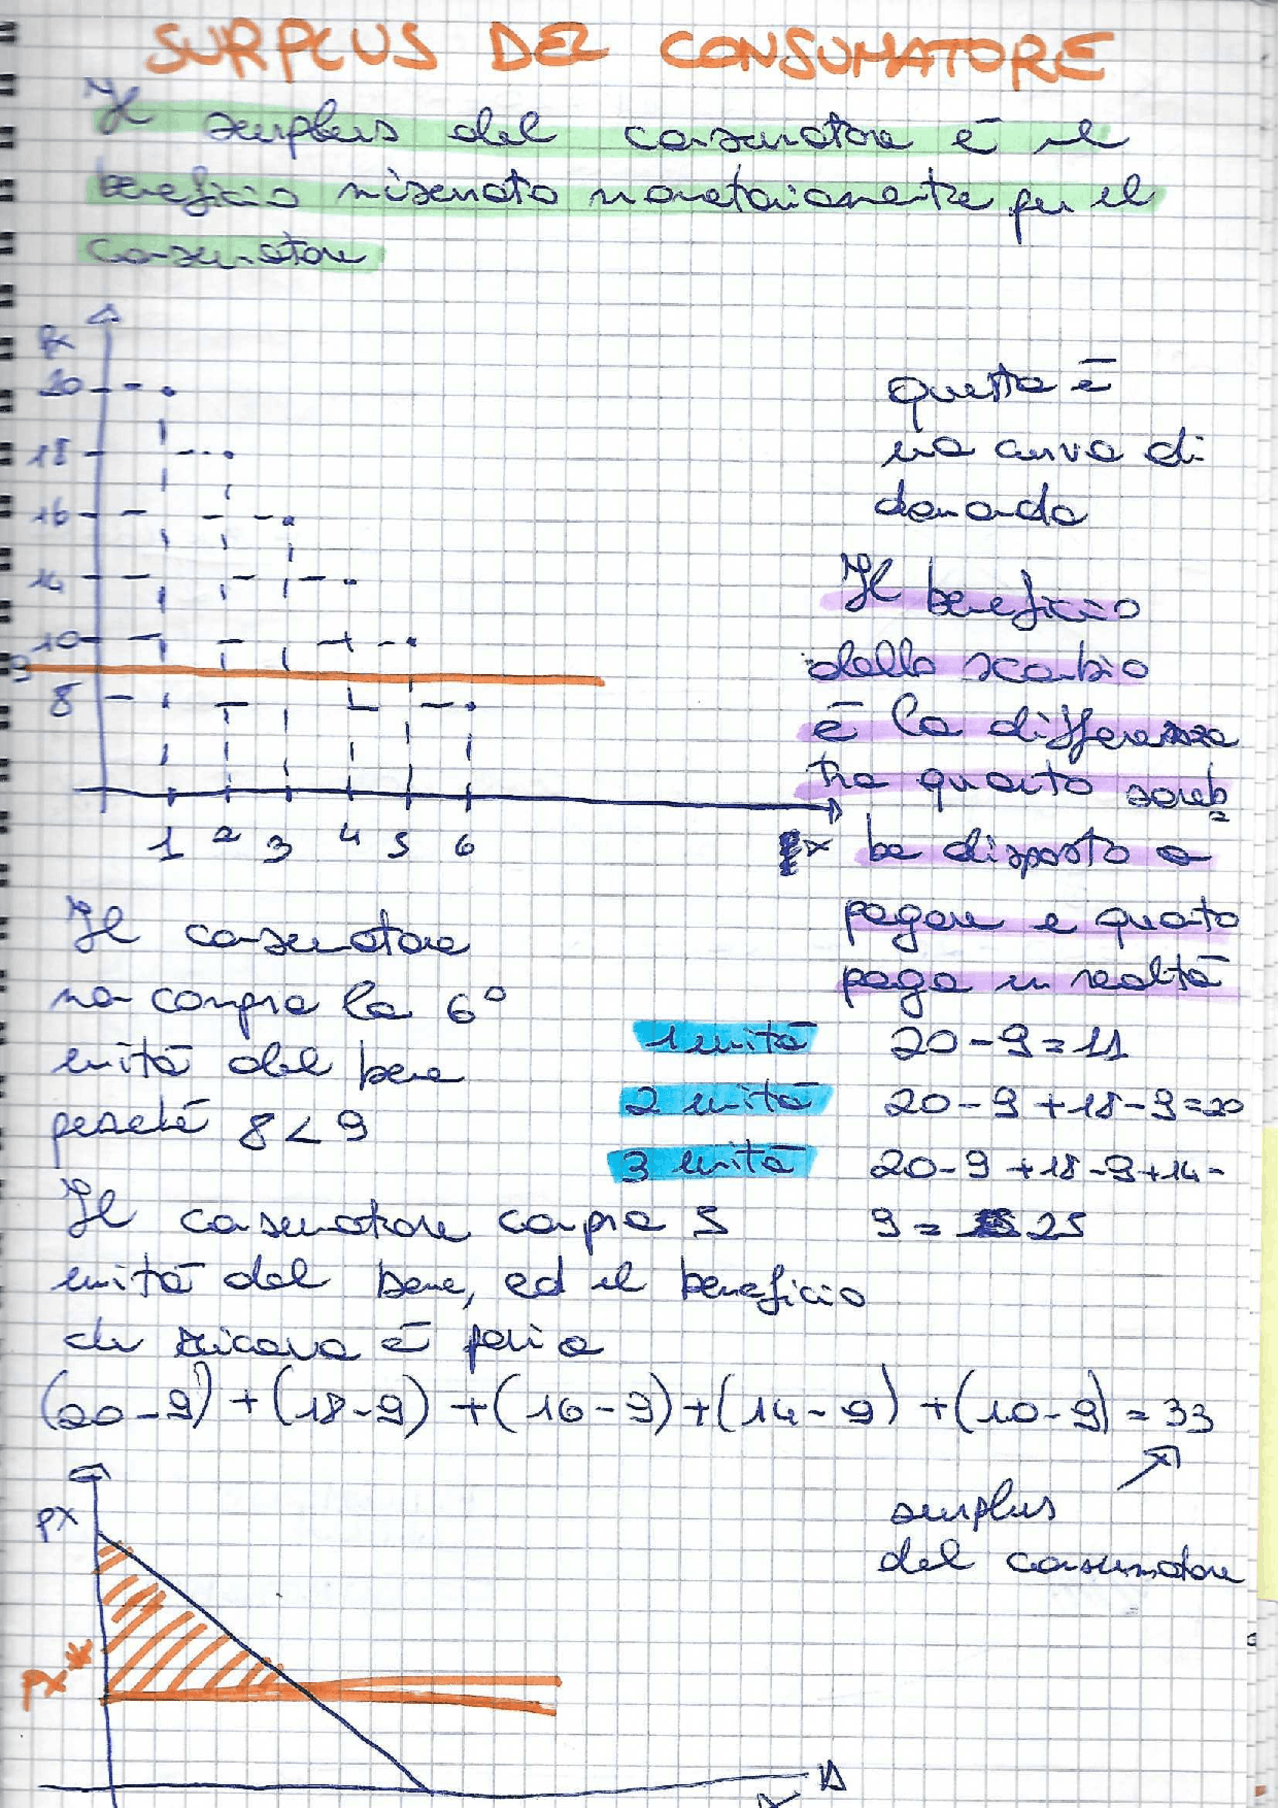 SURPLUS DEL CONSUMATORE
Il surplus del consumatore è il
beneficio misurato monetariamente per il
consumatore
Px
20
18
16
14
10
9
8
1 2 3 4 5 6
x
questa è
una curva di
domanda
Il beneficio
dello scambio
è la differenza
tra quanto sareb
be disposto a
pagare e quanto
paga in realtà
Il consumatore
non compra la 6°
unità del bene
perché 8 < 9
1 unità 20 - 9 = 11
2 unità 20 - 9 + 18 - 9 = 20
3 unità 20 - 9 + 18 - 9 + 14 -
9 = 25
Il consumatore compra 5
unità del bene, ed il beneficio
che ricava è pari a
(20 - 9) + (18 - 9) + (16 - 9) + (14 - 9) + (10 - 9) = 33
surplus
del consumatore
px
px*
x